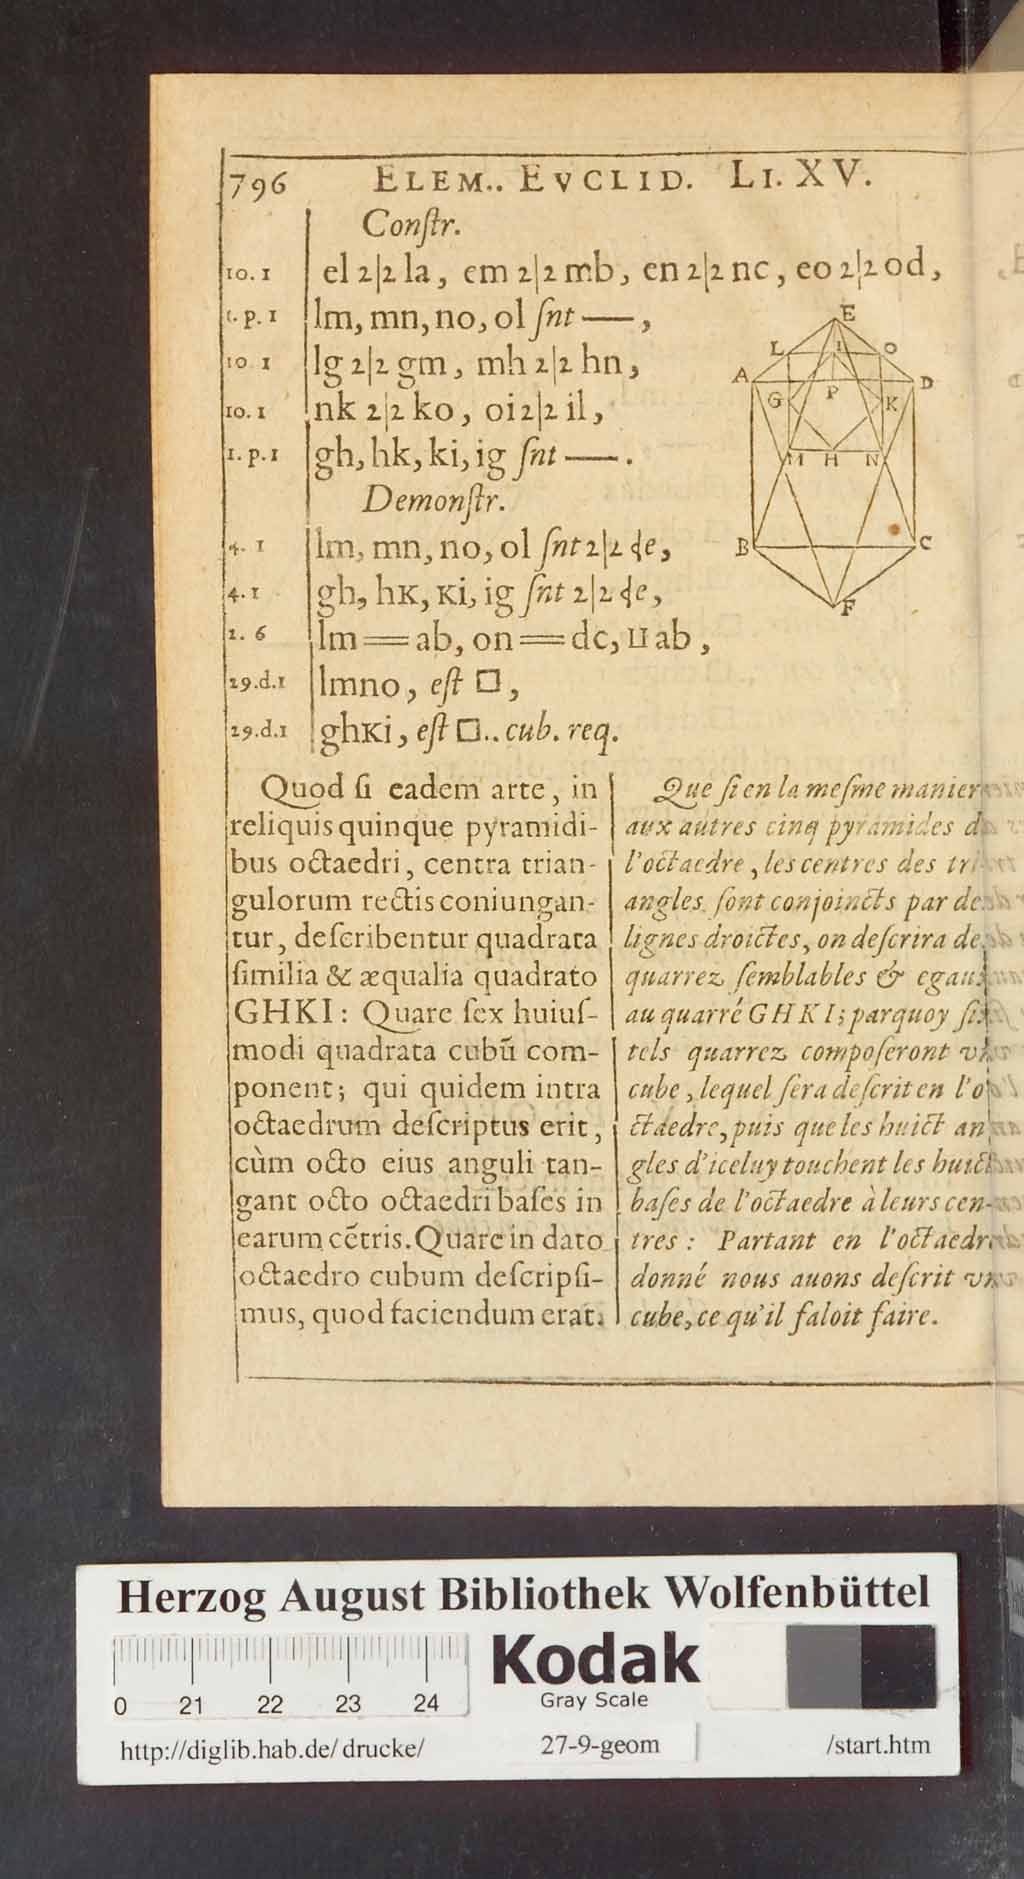 796 ELEM.. EVCLID. LI. XV.
Conſtr.
10. 1 el 2|2 la, em 2|2 mb, en 2|2 nc, eo 2|2 od,
1. p. 1 lm, mn, no, ol ſnt —,
10 1 lg 2|2 gm, mh 2|2 hn,
10. 1 nk 2|2 ko, oi 2|2 il,
1. p. 1 gh, hk, ki, ig ſnt —.
Demonſtr.
4. 1 lm, mn, no, ol ſnt 2|2 de,
4. 1 gh, hK, Ki, ig ſnt 2|2 de,
2. 6 lm = ab, on = dc, ⊔ ab,
29.d.1 lmno, eſt □,
29.d.1 ghKi, eſt □.. cub. req.
E
L I O
A D
G P K
M H N
B C
F
Quod ſi eadem arte, in
reliquis quinque pyramidi-
bus octaedri, centra trian-
gulorum rectis coniungan-
tur, deſcribentur quadrata
ſimilia & æqualia quadrato
GHKI: Quare ſex huiuſ-
modi quadrata cubũ com-
ponent; qui quidem intra
octaedrum deſcriptus erit,
cùm octo eius anguli tan-
gant octo octaedri baſes in
earum cẽtris. Quare in dato
octaedro cubum deſcripſi-
mus, quod faciendum erat.
Que ſi en la meſme manier
aux autres cinq pyramides d
l'octaedre, les centres des tri-
angles ſont conjoincts par de
lignes droictes, on deſcrira de
quarrez ſemblables & egau
au quarré GHKI; parquoy ſi
tels quarrez compoſeront vn
cube, lequel ſera deſcrit en l'o
ctaedre, puis que les huict an
gles d'iceluy touchent les huict
baſes de l'octaedre à leurs cen-
tres : Partant en l'octaedr
donné nous auons deſcrit vn
cube, ce qu'il faloit faire.
Herzog August Bibliothek Wolfenbüttel
Kodak
Gray Scale
0 21 22 23 24
http://diglib.hab.de/drucke/ 27-9-geom /start.htm